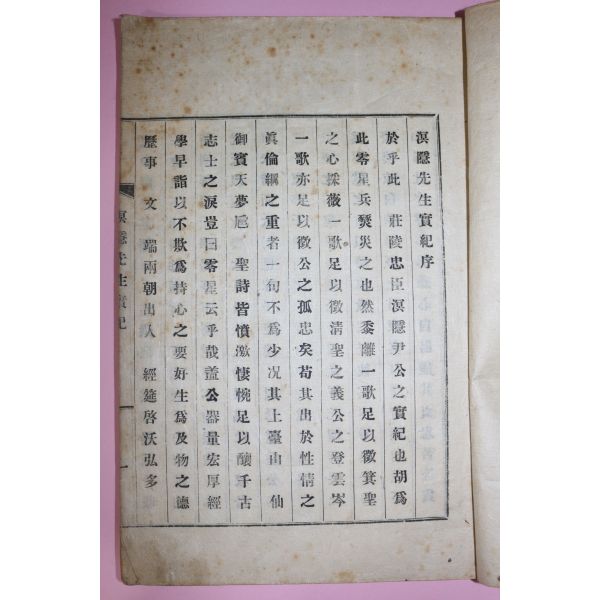 溟隱先生實紀序
於乎此 莊陵忠臣溟隱尹公之實紀也胡爲
此零星兵燹災之也然黍離一歌足以徵箕聖
之心採薇一歌足以徵淸聖之義公之登雲岑
一歌亦足以徵公之孤忠矣苟其出於性情之
眞倫綱之重者一句不爲少况其上臺山 仙
御賓天夢 聖詩皆憤激悽惋足以釀千古
志士之淚豈曰零星云乎哉盖公器量宏厚經
學早詣以不欺爲持心之要好生爲及物之德
歷事 文 端兩朝出入 經筵啓沃弘多
溟隱先生實紀
一